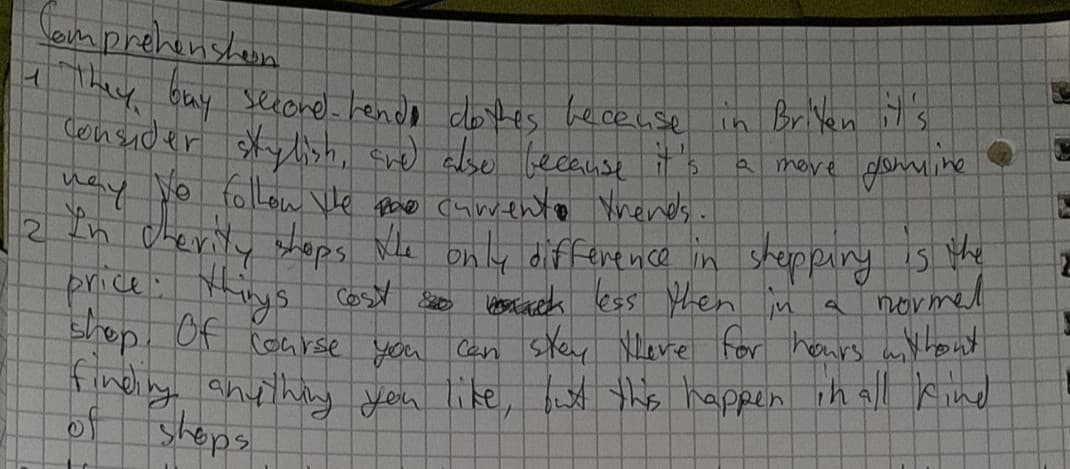 Comprehenshon
1 They buy second-hand clothes because in Briten it's
consider stylish, and also because it's a more genuine
way to follow the current trends.
2 In cherity shops the only difference in shopping is the
price: things cost less then in a normal
shop. Of course you can stay there for hours without
finding anything you like, but this happen in all kind
of shops